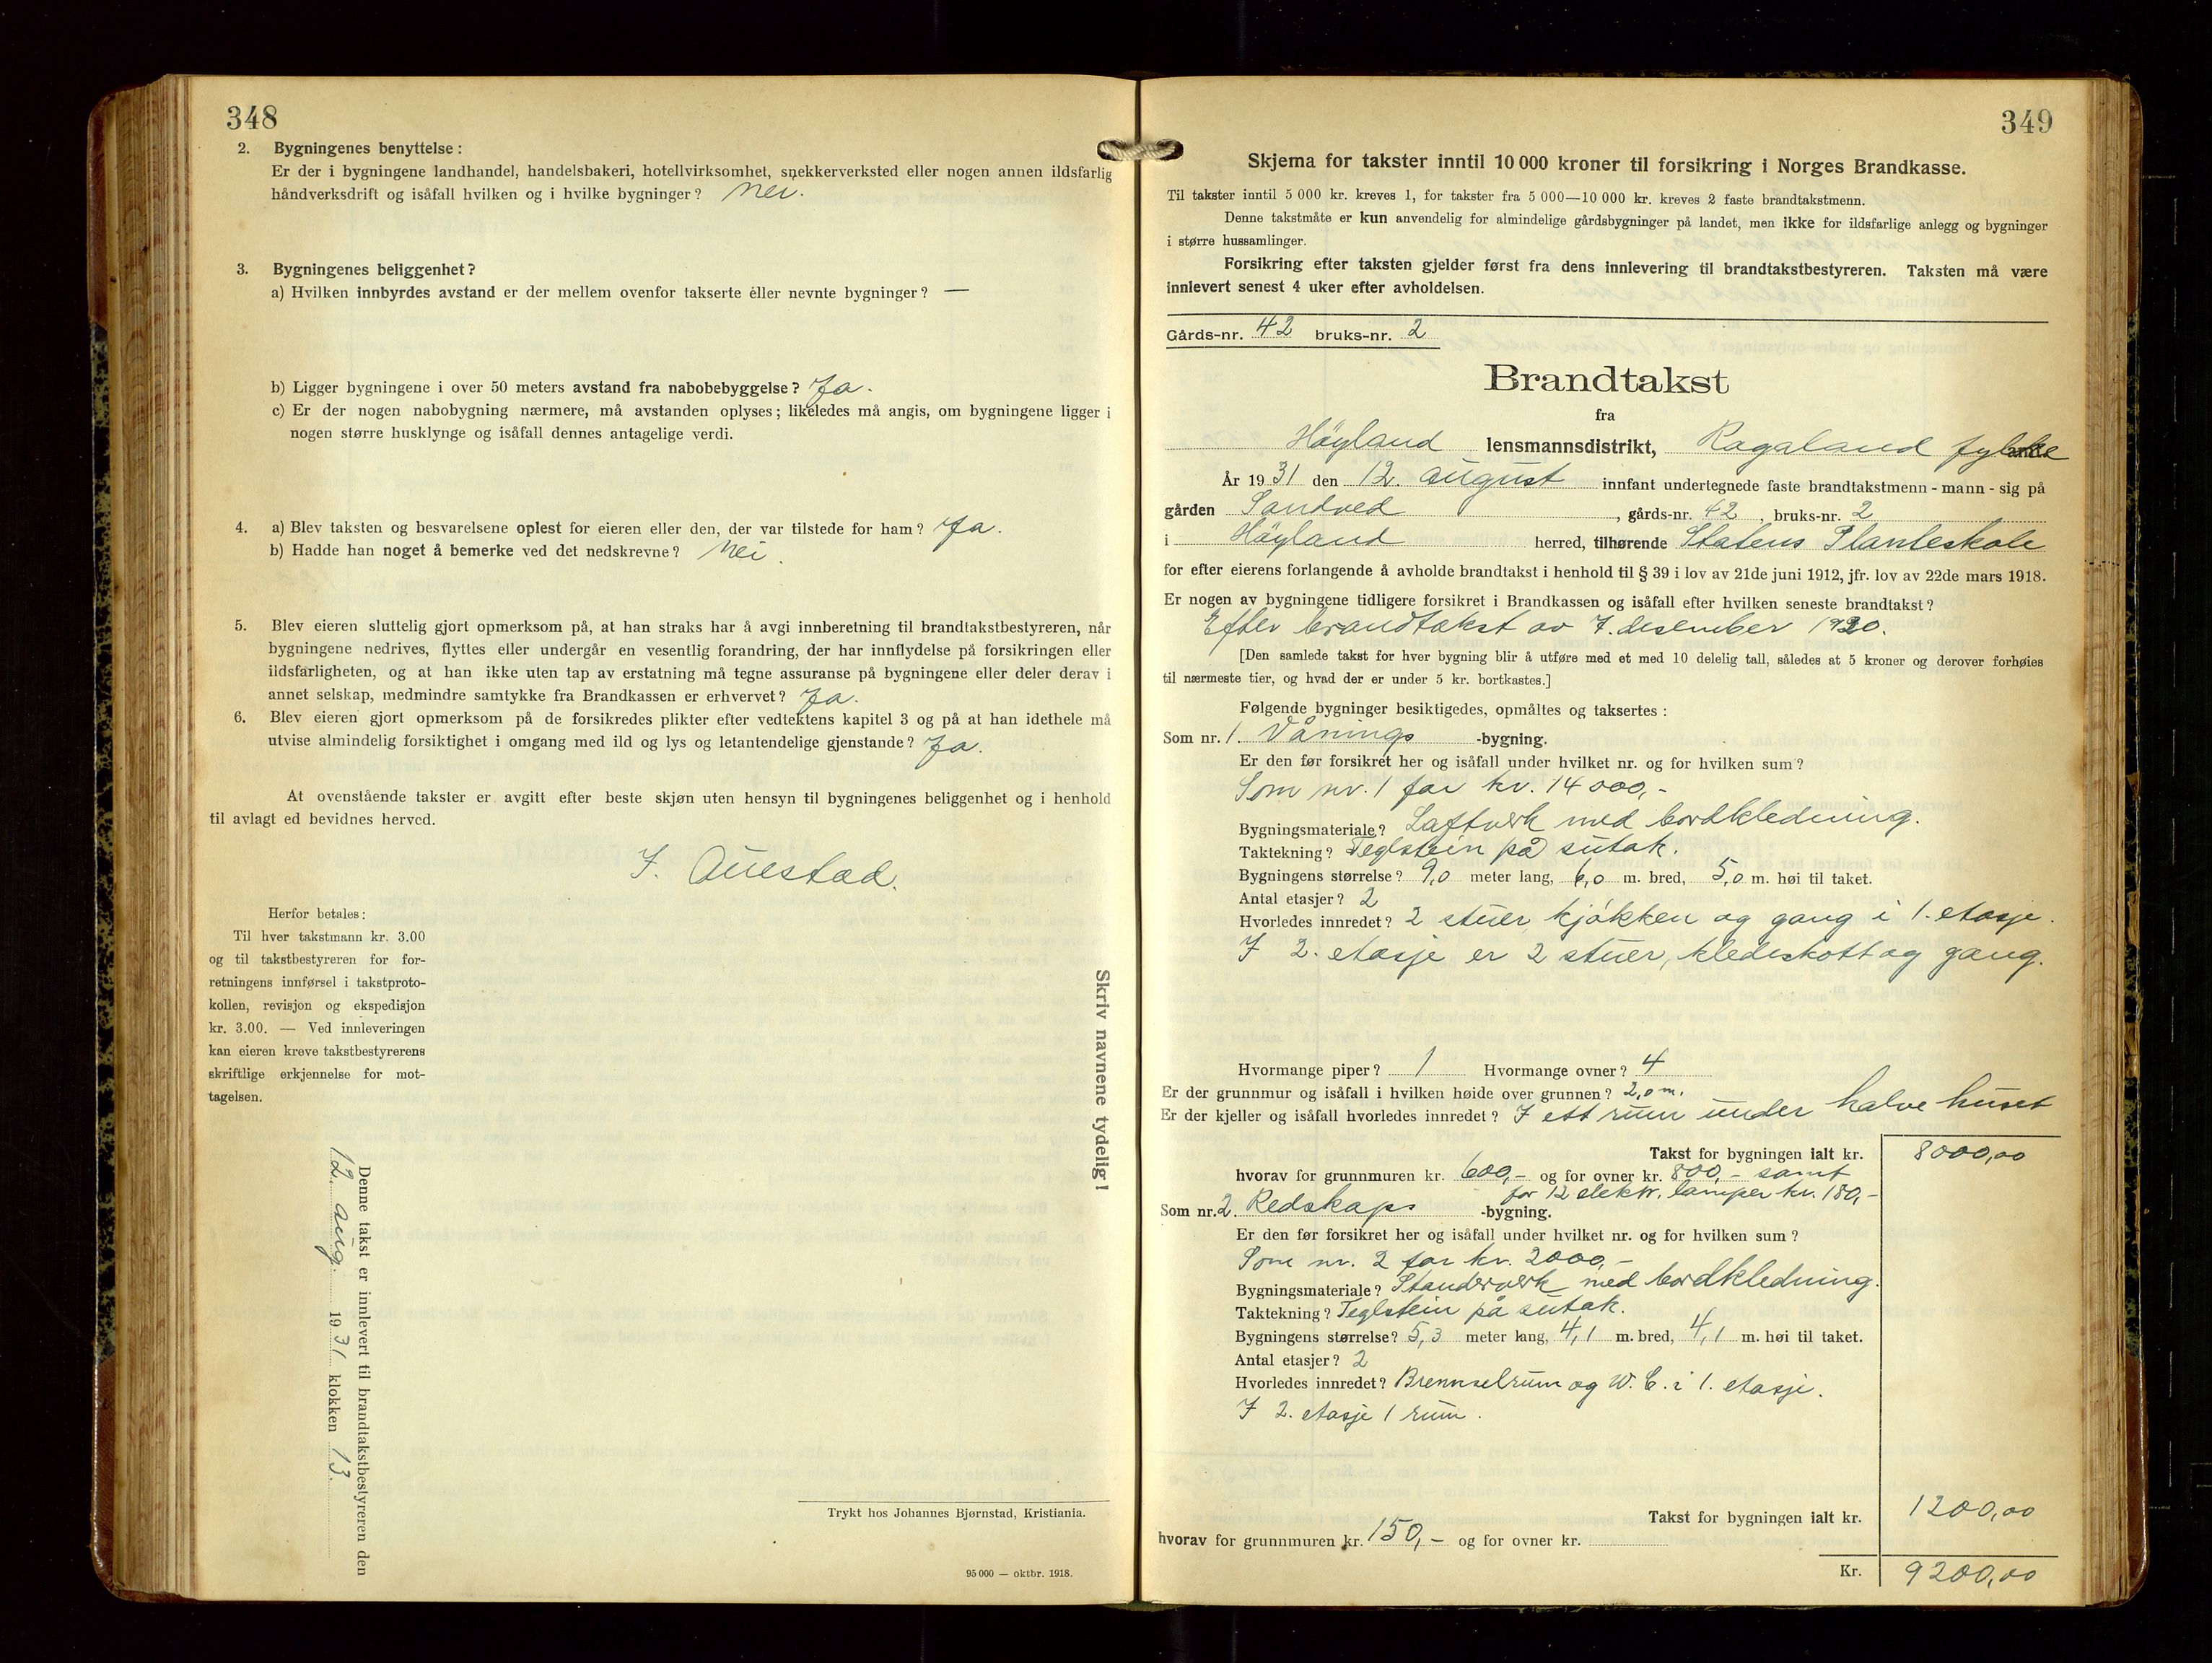 348
2. Bygningenes benyttelse:
Er der i bygningene landhandel, handelsbakeri, hotellvirksomhet, snekkerverksted eller nogen annen ildsfarlig
håndverksdrift og isåfall hvilken og i hvilke bygninger? Nei.
3. Bygningenes beliggenhet?
a) Hvilken innbyrdes avstand er der mellem ovenfor takserte eller nevnte bygninger? —
b) Ligger bygningene i over 50 meters avstand fra nabobebyggelse? Ja.
c) Er der nogen nabobygning nærmere, må avstanden oplyses; likeledes må angis, om bygningene ligger i
nogen større husklynge og isåfall dennes antagelige verdi.
4. a) Blev taksten og besvarelsene oplest for eieren eller den, der var tilstede for ham? Ja.
b) Hadde han noget å bemerke ved det nedskrevne? Nei.
5. Blev eieren sluttelig gjort opmerksom på, at han straks har å avgi innberetning til brandtakstbestyreren, når
bygningene nedrives, flyttes eller undergår en vesentlig forandring, der har innflydelse på forsikringen eller
ildsfarligheten, og at han ikke uten tap av erstatning må tegne assuranse på bygningene eller deler derav i
annet selskap, medmindre samtykke fra Brandkassen er erhvervet? Ja.
6. Blev eieren gjort opmerksom på de forsikredes plikter efter vedtektens kapitel 3 og på at han idethele må
utvise almindelig forsiktighet i omgang med ild og lys og letantendelige gjenstande? Ja.
At ovenstående takster er avgitt efter beste skjøn uten hensyn til bygningenes beliggenhet og i henhold
til avlagt ed bevidnes herved.
J. Auestad.
Herfor betales:
Til hver takstmann kr. 3.00
og til takstbestyreren for for-
retningens innførsel i takstproto-
kollen, revisjon og ekspedisjon
kr. 3.00. — Ved innleveringen
kan eieren kreve takstbestyrerens
skriftlige erkjennelse for mot-
tagelsen.
Skriv navnene tydelig!
Denne takst er innlevert til brandtakstbestyreren den
12. aug. 1931 klokken 13.
Trykt hos Johannes Bjørnstad, Kristiania.
95 000 — oktbr. 1918.
349
Skjema for takster inntil 10 000 kroner til forsikring i Norges Brandkasse.
Til takster inntil 5 000 kr. kreves 1, for takster fra 5 000—10 000 kr. kreves 2 faste brandtakstmenn.
Denne takstmåte er kun anvendelig for almindelige gårdsbygninger på landet, men ikke for ildsfarlige anlegg og bygninger
i større hussamlinger.
Forsikring efter taksten gjelder først fra dens innlevering til brandtakstbestyreren. Taksten må være
innlevert senest 4 uker efter avholdelsen.
Gårds-nr. 42 bruks-nr. 2
Brandtakst
fra
Høyland lensmannsdistrikt, Rogaland fylke
År 1931 den 12. august innfant undertegnede faste brandtakstmenn - mann - sig på
gården Sandved, gårds-nr. 42, bruks-nr. 2
i Høyland herred, tilhørende Statens Planteskole
for efter eierens forlangende å avholde brandtakst i henhold til § 39 i lov av 21de juni 1912, jfr. lov av 22de mars 1918.
Er nogen av bygningene tidligere forsikret i Brandkassen og isåfall efter hvilken seneste brandtakst?
Efter brandtakst av 7. desember 1920.
[Den samlede takst for hver bygning blir å utføre med et med 10 delelig tall, således at 5 kroner og derover forhøies
til nærmeste tier, og hvad der er under 5 kr. bortkastes.]
Følgende bygninger besiktigedes, opmåltes og taksertes:
Som nr. 1. Vånings -bygning.
Er den før forsikret her og isåfall under hvilket nr. og for hvilken sum?
Som nr. 1 for kr. 14000,-
Bygningsmateriale? Laftverk med bordkledning.
Taktekning? Teglstein på sutak.
Bygningens størrelse? 9,0 meter lang, 6,0 m. bred, 5,0 m. høi til taket.
Antal etasjer? 2
Hvorledes innredet? 2 stuer, kjøkken og gang i 1. etasje.
I 2. etasje er 2 stuer, kledeskott og gang.
Hvormange piper? 1 Hvormange ovner? 4
Er der grunnmur og isåfall i hvilken høide over grunnen? 2,0 m.
Er der kjeller og isåfall hvorledes innredet? I ett rum under halve huset
Takst for bygningen ialt kr. 8000,00
hvorav for grunnmuren kr. 600,- og for ovner kr. 800,- samt
for 12 elektr. lamper kr. 180,-
Som nr. 2. Redskaps -bygning.
Er den før forsikret her og isåfall under hvilket nr. og for hvilken sum?
Som nr. 2 for kr. 2000,-
Bygningsmateriale? Standerverk med bordkledning.
Taktekning? Teglstein på sutak.
Bygningens størrelse? 5,3 meter lang, 4,1 m. bred, 4,1 m. høi til taket.
Antal etasjer? 2
Hvorledes innredet? Brennselrum og W.C. i 1. etasje.
I 2. etasje 1 rum.
Takst for bygningen ialt kr. 1200,00
hvorav for grunnmuren kr. 150,- og for ovner kr.
Kr. 9200,00